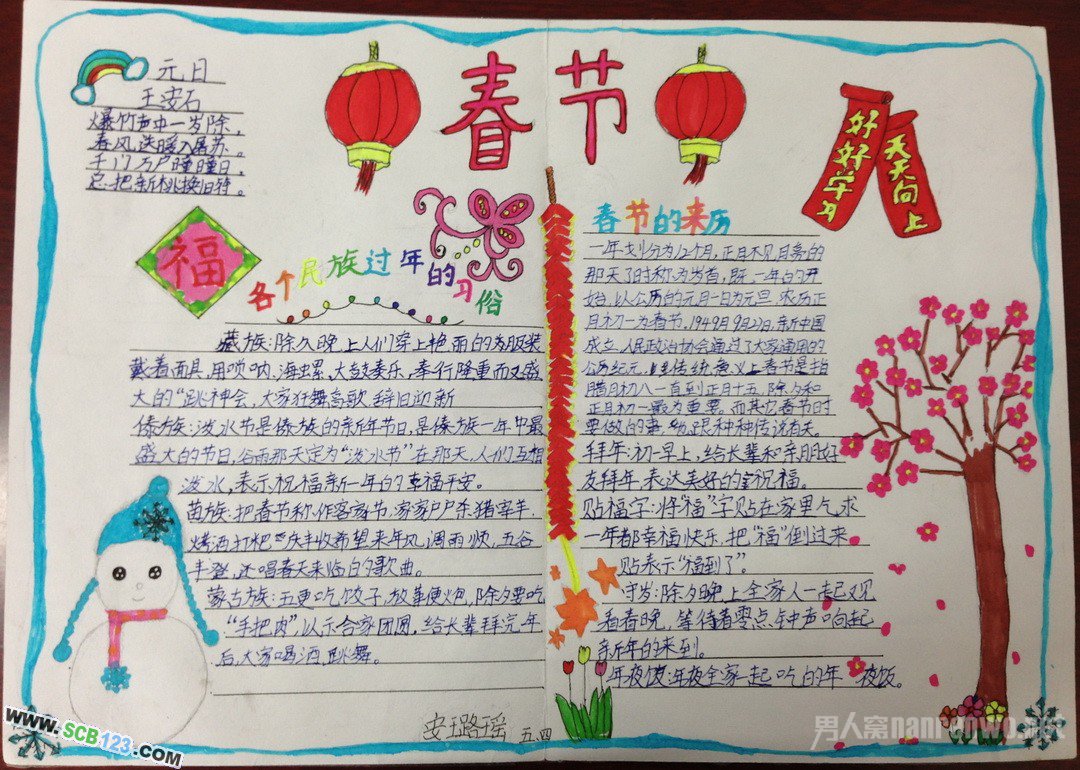 春节
元日
王安石
爆竹声中一岁除，
春风送暖入屠苏。
千门万户曈曈日，
总把新桃换旧符。
福
各个民族过年的习俗
藏族：除夕晚上人们穿上艳丽的衣服装
戴着面具，用唢呐、海螺、大鼓奏乐，奉行隆重而又盛
大的“跳神会，大家狂舞高歌辞旧迎新
傣族：泼水节是傣族的新年节日，是傣族一年中最
盛大的节日，谷雨那天定为“泼水节”在那天，人们互相
泼水，表示祝福新一年的幸福平安。
苗族：把春节称作客家节，家家户户杀猪宰羊
烤酒打粑庆丰收希望来年风调雨顺，五谷
丰登，还唱春天来临白的歌曲。
蒙古族：五更吃饺子，放革便火包，除夕要吃
“手把肉”以示合家团圆，给长辈拜完年
后，大家喝酒，跳舞。
好好学习
天天向上
春节的来历
一年划分为12个月，正月不见月亮的
那天了时称为岁首，既一年的开
始，以公历的元月一日为元旦农历正
月初一为春节，1949月9月27日，新中国
成立，人民政治协会通过了大家通用的
公历纪元，传统意义上春节是指
腊月初八一直到正月十五，除夕和
正月初一最为重要。而其它春节时
要做的事，幼跟种种传说有关。
拜年：初一早上，给长辈和亲朋好
友拜年，表达美好的祝福。
贴福字：将“福”字贴在家里气求
一年都幸福快乐，把“福”倒过来
贴表示“福到了”。
守岁：除夕晚上全家人一起观
看春晚，等待着零点钟声响起
新年的来到。
年夜饭：年夜全家一起吃的年夜饭。
安珏路瑶 五.四
www.SCB123.com
男人窝nanrenwo.net